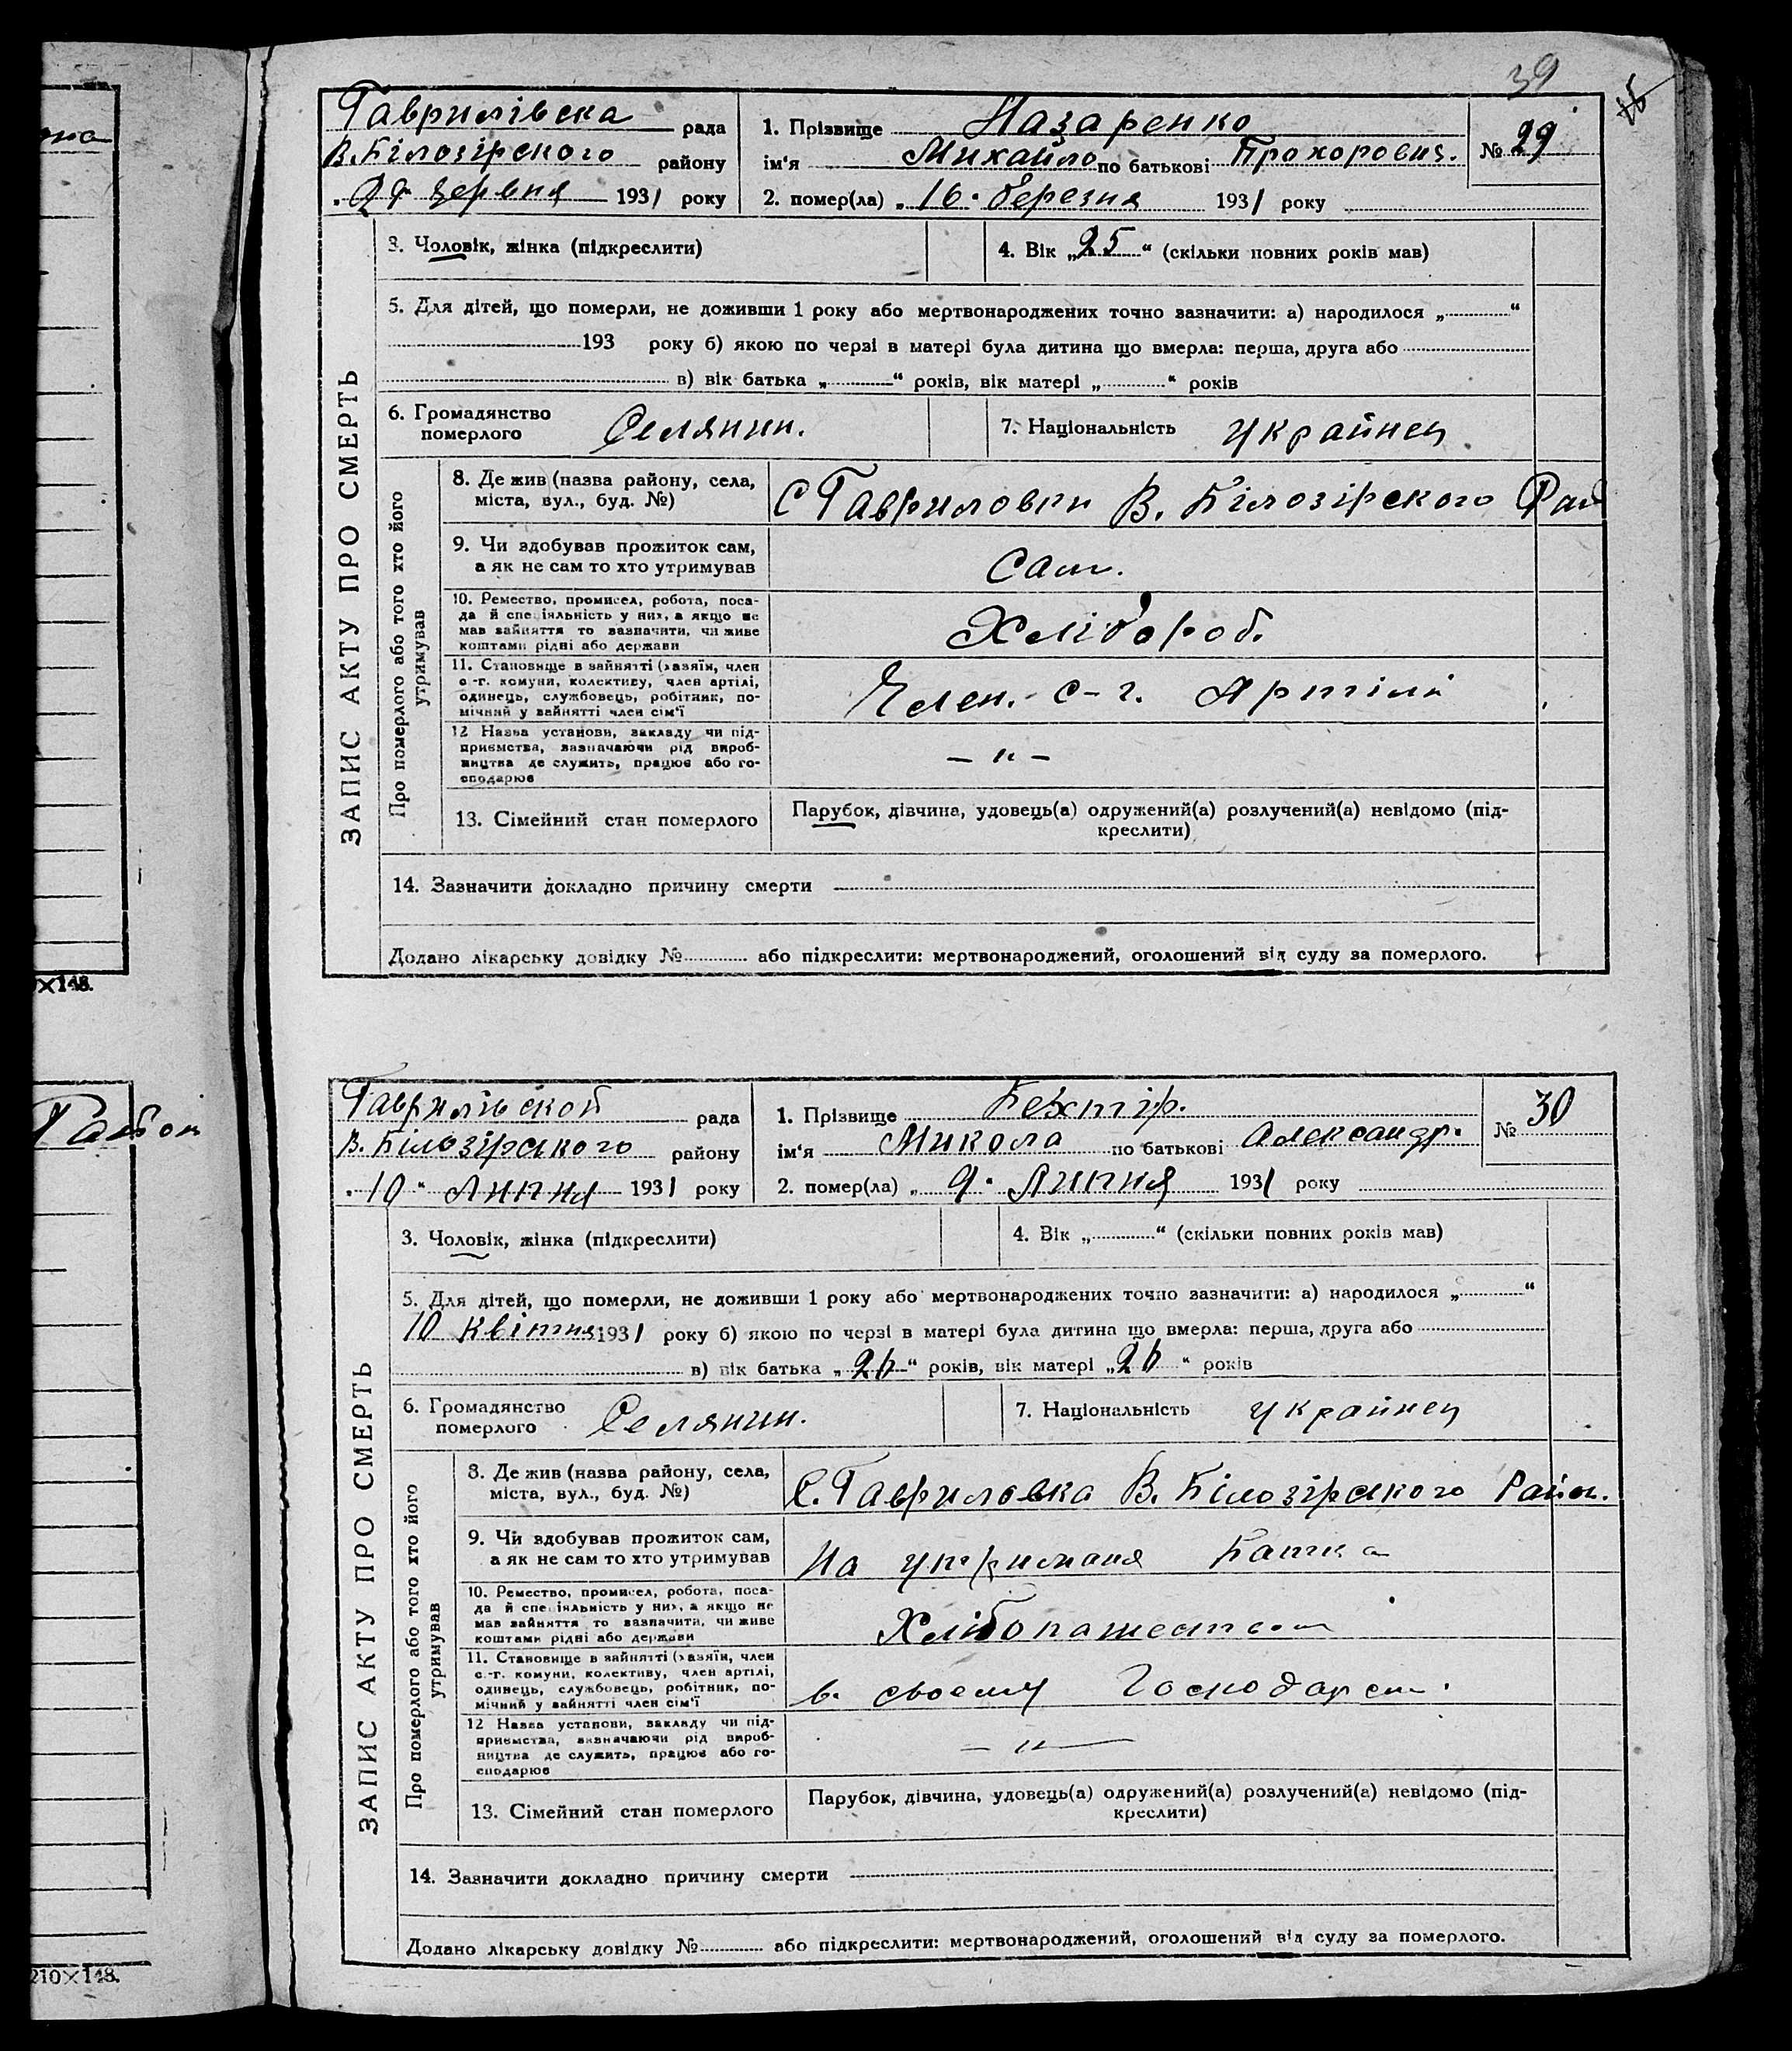 39
Гаврилівска рада
В. Білозірского району
1931 року
1. Прізвище Назаренко
ім'я Михайло по батькові Прохорович.
2. помер(ла) „ 16 " березня 1931 року
№ 29
ЗАПИС АКТУ ПРО СМЕРТЬ
3. Чоловік, жінка (підкреслити)
4. Вік „ 25 “ (скільки повних років мав)
5. Для дітей, що померли, не доживши 1 року або мертвонароджених точно зазначити: а) народилося „ “
193 року б) якою по черзі в матері була дитина що вмерла: перша, друга або
в) вік батька „ “ років, вік матері „ “ років
6. Громадянство
померлого Селянин.
7. Національність Украйнец
Про померлого або того хто його
утримував
8. Де жив (назва району, села,
міста, вул., буд. №)
С Гавриловки В. Білозірского Рай
9. Чи здобував прожиток сам,
а як не сам то хто утримував
Сам.
10. Ремество, промисел, робота, поса-
да й спеціяльність у них, а якщо не
мав зайняття то зазначити, чи живе
коштами рідні або держави
Хлібороб.
11. Становище в зайнятті (хазяїн, член
с.-г. комуни, колективу, член артілі,
одинець, службовець, робітник, по-
мічний у зайнятті член сім'ї
Член. с-г. Артілі
12 Назва установи, закладу чи під-
приємства, зазначаючи рід вироб-
ництва де служить, працює або го-
сподарює
– " –
13. Сімейний стан померлого
Парубок, дівчина, удовець(а) одружений(а) розлучений(а) невідомо (під-
креслити)
14. Зазначити докладно причину смерти
Додано лікарську довідку № або підкреслити: мертвонароджений, оголошений від суду за померлого.
×148.
Гаврилівской рада
В. Білозірського району
„ 10 " Липня 1931 року
1. Прізвище Бехтір.
ім'я Микола по батькові Александр.
2. помер(ла) „ 9 " Липня 1931 року
№ 30
ЗАПИС АКТУ ПРО СМЕРТЬ
3. Чоловік, жінка (підкреслити)
4. Вік „ “ (скільки повних років мав)
5. Для дітей, що померли, не доживши 1 року або мертвонароджених точно зазначити: а) народилося „ “
10 квітня 1931 року б) якою по черзі в матері була дитина що вмерла: перша, друга або
в) вік батька „ “ років, вік матері „ “ років
6. Громадянство
померлого Селянин.
7. Національність Украинец
Про померлого або того хто його
утримував
8. Де жив (назва району, села,
міста, вул., буд. №)
С. Гавриловка В. Білозірского Район.
9. Чи здобував прожиток сам,
а як не сам то хто утримував
На утриманя Батка
10. Ремество, промисел, робота, поса-
да й спеціяльність у них, а якщо не
мав зайняття то зазначити, чи живе
коштами рідні або держави
11. Становище в зайнятті (хазяїн, член
с.-г. комуни, колективу, член артілі,
одинець, службовець, робітник, по-
мічний у зайнятті член сім'ї
в. своему Господарст.
12 Назва установи, закладу чи під-
приємства, зазначаючи рід вироб-
ництва де служить, працює або го-
сподарює
– " –
13. Сімейний стан померлого
Парубок, дівчина, удовець(а) одружений(а) розлучений(а) невідомо (під-
креслити)
14. Зазначити докладно причину смерти
Додано лікарську довідку № або підкреслити: мертвонароджений, оголошений від суду за померлого.
210×148.